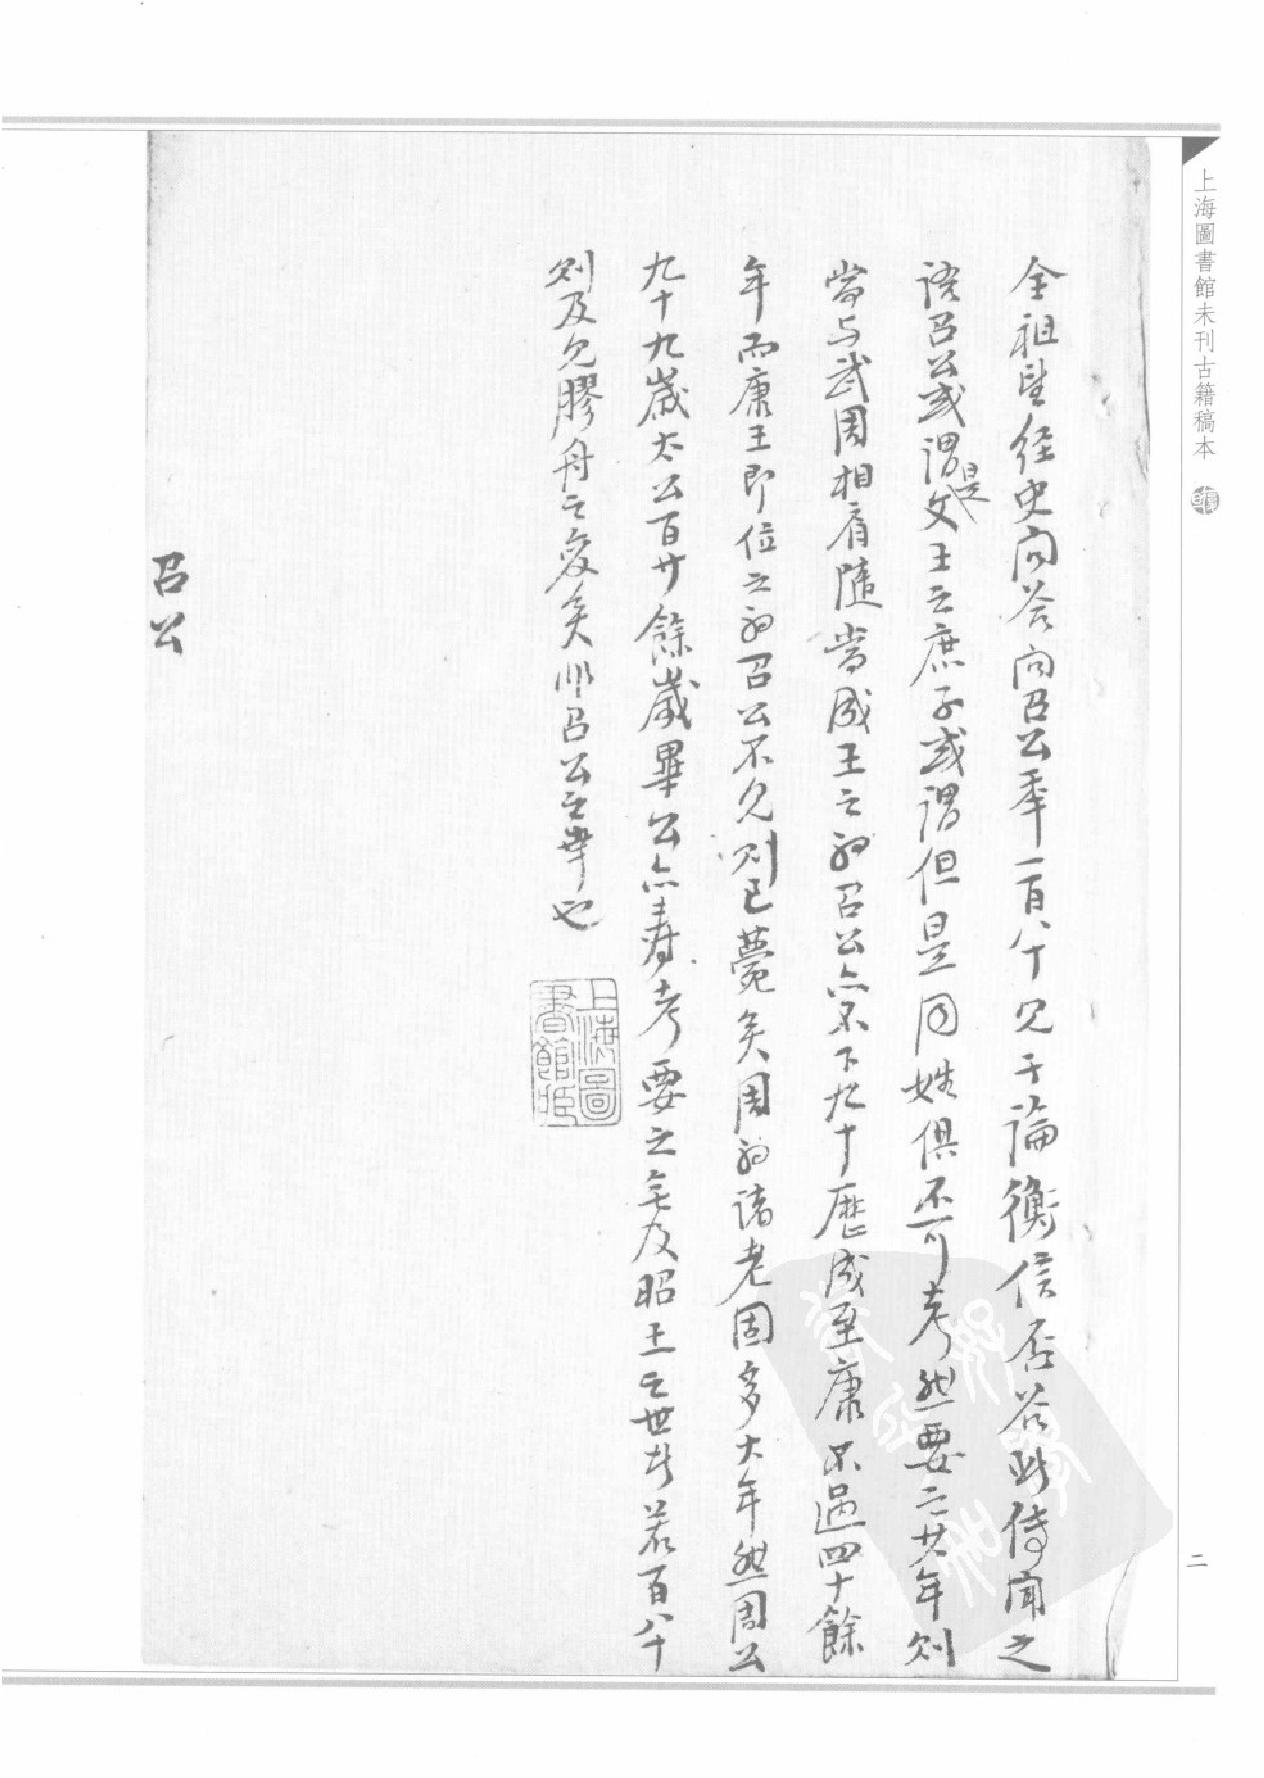 上海圖書館未刊古籍稿本
二
全祖望经史问答问召公年一百八十见于論衡信否答此傳闻之
語召公或谓是文王之庶子或谓但是同姓俱不可考然要之其年则
當与武周相肩随當成王之初召公亦不下九十歷成至康不過四十餘
年而康王即位之初召公不见则已薨矣周初諸老固多大年然周公
九十九歲太公百廿餘歲畢公亦寿考要之無及昭王之世者若百八十
则及见膠舟之变矣非召公之幸也
上海圖
書館藏
召公